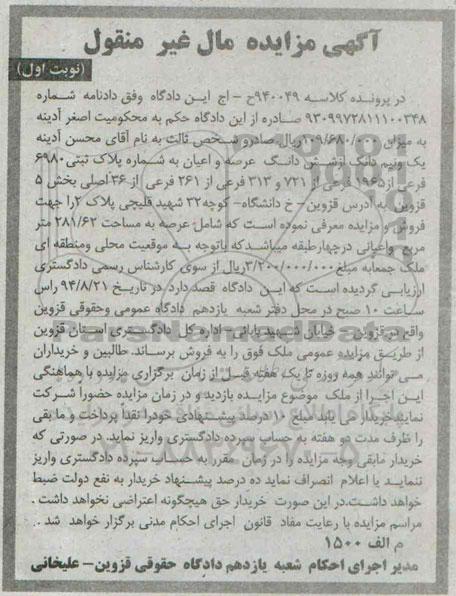 آگهی مزایده مال غیر منقول
(نوبت اول)
در پرونده کلاسه ۹۴۰۰۴۹ح - اج این دادگاه وفق دادنامه شماره
۹۳۰۹۹۷۲۸۱۱۱۰۰۳۴۸ صادره از این دادگاه حکم به محکومیت اصغر آدینه
به میزان ریال صادر و شخص ثالث به نام آقای محسن آدینه
یک ونیم دانگ ازشش دانگ عرصه و اعیان به شماره پلاک ثبتی ۶۹۸۰
فرعی از ۱۹۶۵ فرعی از ۷۲۱ و ۳۱۳ فرعی از ۲۶۱ فرعی از ۳۶ اصلی بخش ۵
قزوین به آدرس قزوین- خ دانشگاه- کوچه ۳۲ شهید قلیچی پلاک ۲ را جهت
فروش و مزایده معرفی نموده است که شامل عرصه به مساحت ۲۸۱/۶۲ متر
مربع واعیانی درچهارطبقه میباشدکه باتوجه به موقعیت محلی ومنطقه ای
ملک جمعابه مبلغ ۳/۲۰۰/۰۰۰/۰۰۰ریال از سوی کارشناس رسمی دادگستری
ارزیابی گردیده است که این دادگاه قصد دارد در تاریخ ۹۴/۸/۲۱ راس
ساعت ۱۰ صبح در محل دفتر شعبه یازدهم دادگاه عمومی وحقوقی قزوین
واقع در قزوین - خیابان شهید بابائی - اداره کل دادگستری استان قزوین
از طریق مزایده عمومی ملک فوق را به فروش برساند. طالبین و خریداران
می توانند همه روزه تا یک هفته قبل از زمان برگزاری مزایده با هماهنگی
این اجرا از ملک موضوع مزایده بازدید و در زمان مزایده حضورا شرکت
نمایند خریدار می باید مبلغ ۱۰ درصد پیشنهادی خودرا نقدا پرداخت و ما بقی
را ظرف مدت دو هفته به حساب سپرده دادگستری واریز نماید. در صورتی که
خریدار مابقی وجه مزایده را در زمان مقرر به حساب سپرده دادگستری واریز
ننماید یا اعلام انصراف نماید ده درصد پیشنهاد خریدار به نفع دولت ضبط
خواهد داشت.در این صورت خریدار حق هیچگونه اعتراضی نخواهد داشت .
مراسم مزایده با رعایت مفاد قانون اجرای احکام مدنی برگزار خواهد شد .
م الف ۱۵۰۰
مدیر اجرای احکام شعبه یازدهم دادگاه حقوقی قزوین- علیخانی
ParsNamadData